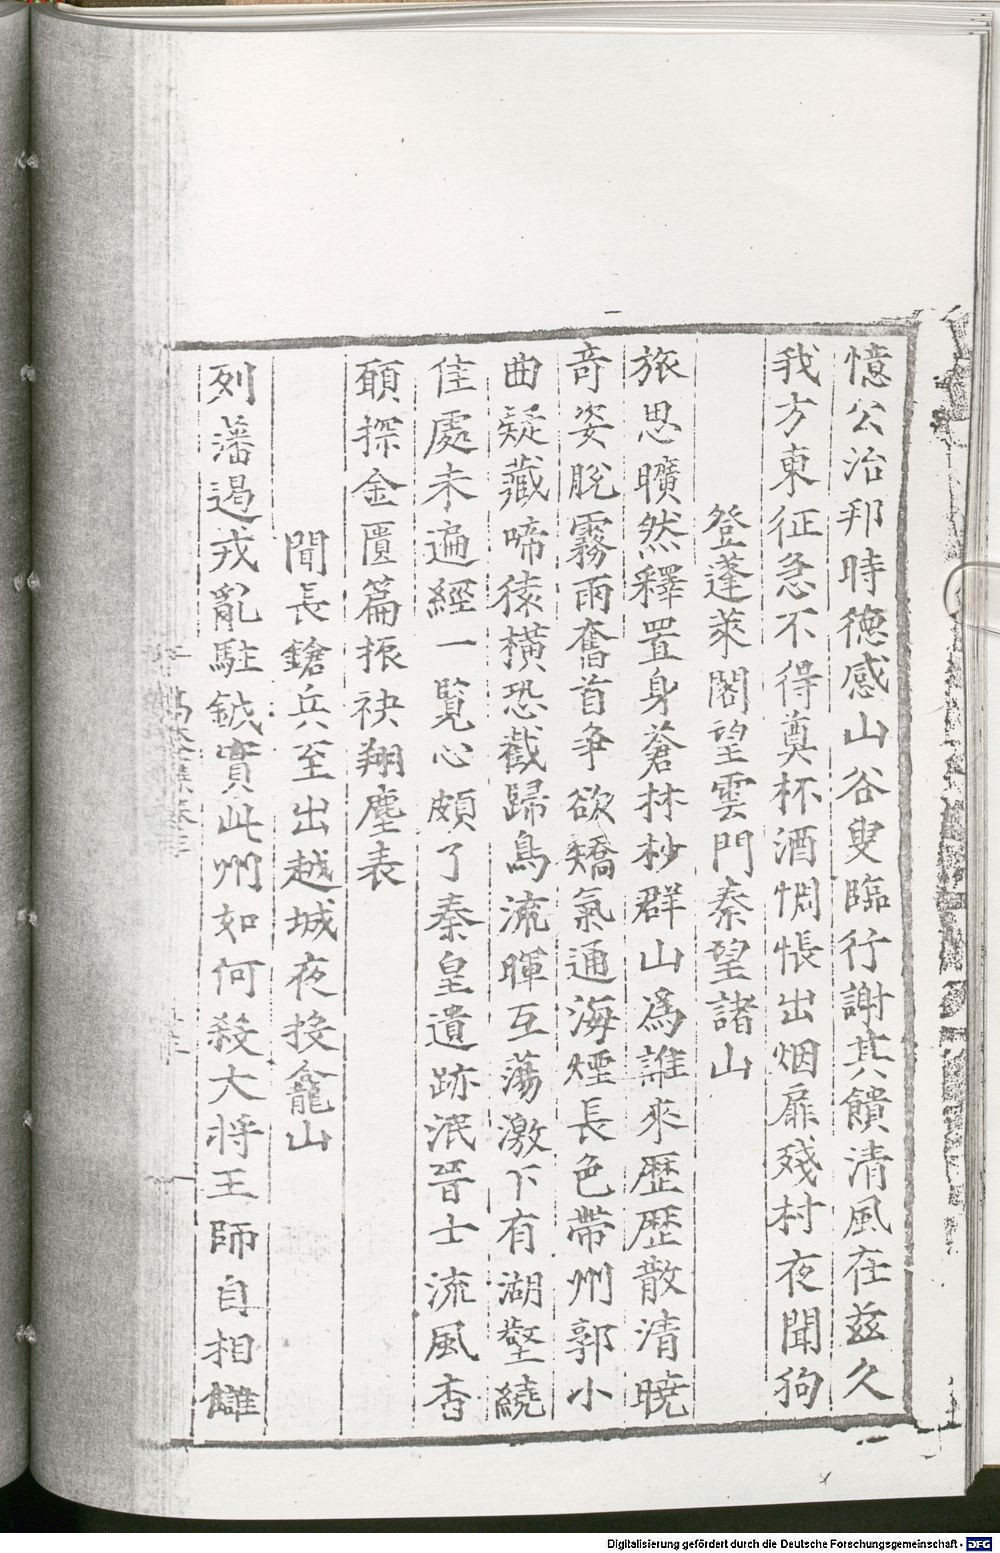 憶公治邦時德感山谷叟臨行謝其饋清風在兹久
我方東征急不得奠杯酒惆悵出烟扉殘村夜聞狗
登蓬萊閣望雲門秦望諸山
旅思曠然釋置身蒼林杪群山爲誰來歷歷散清曉
奇姿脫霧雨奮首爭欲矯氣通海煙長色帶州郭小
曲疑藏啼猿橫恐截歸鳥流暉互蕩激下有湖壑繞
佳處未遍經一覧心頗了秦皇遺跡泯晉士流風杳
願探金匱篇振袂翔塵表
聞長鎗兵至出越城夜投龕山
列藩遏戎亂駐鉞實此州如何殺大將王師自相讎
Digitalisierung gefördert durch die Deutsche Forschungsgemeinschaft - DFG